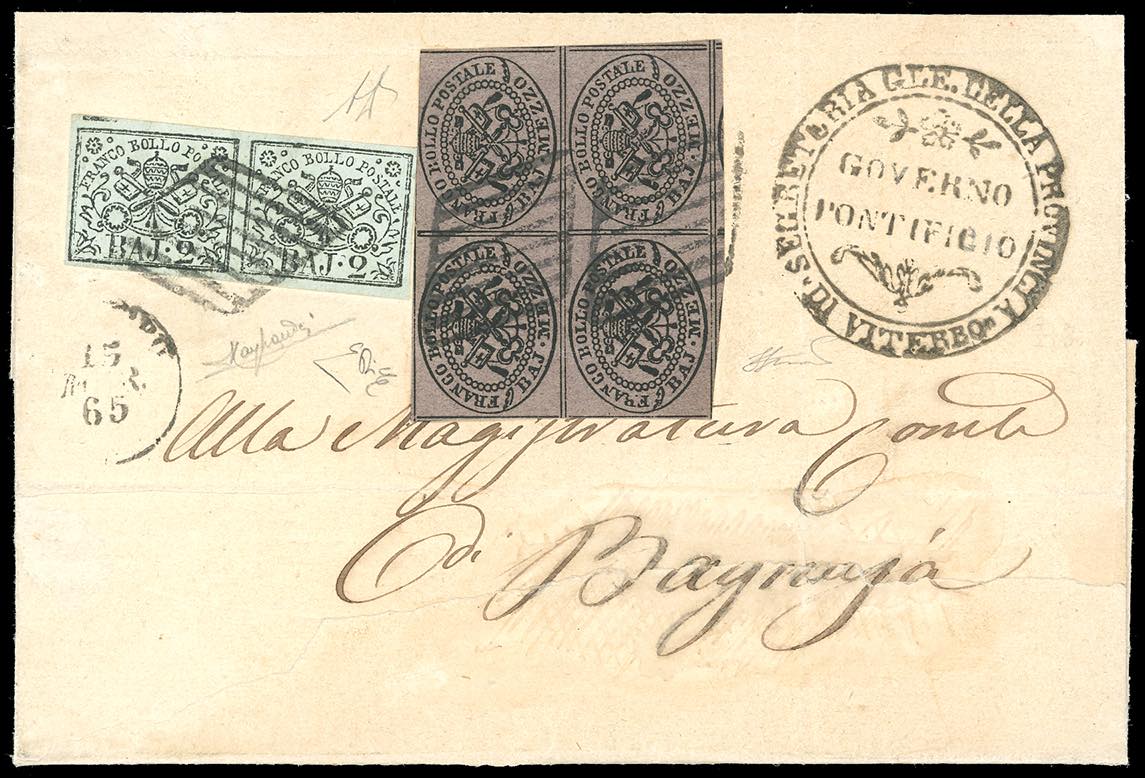 FRANCO BOLLO POSTALE
BAJ·2
FRANCO BOLLO POSTALE
BAJ·2
FRANCO BOLLO POSTALE
MEZZO BAJ
FRANCO BOLLO POSTALE
MEZZO BAJ
FRANCO BOLLO POSTALE
MEZZO BAJ
FRANCO BOLLO POSTALE
MEZZO BAJ
SEGRETERIA GLE. DELLA PROVINCIA
DI VITERBO
GOVERNO
PONTIFICIO
15
65
Alla Magistratura Comle
di Bagnaja